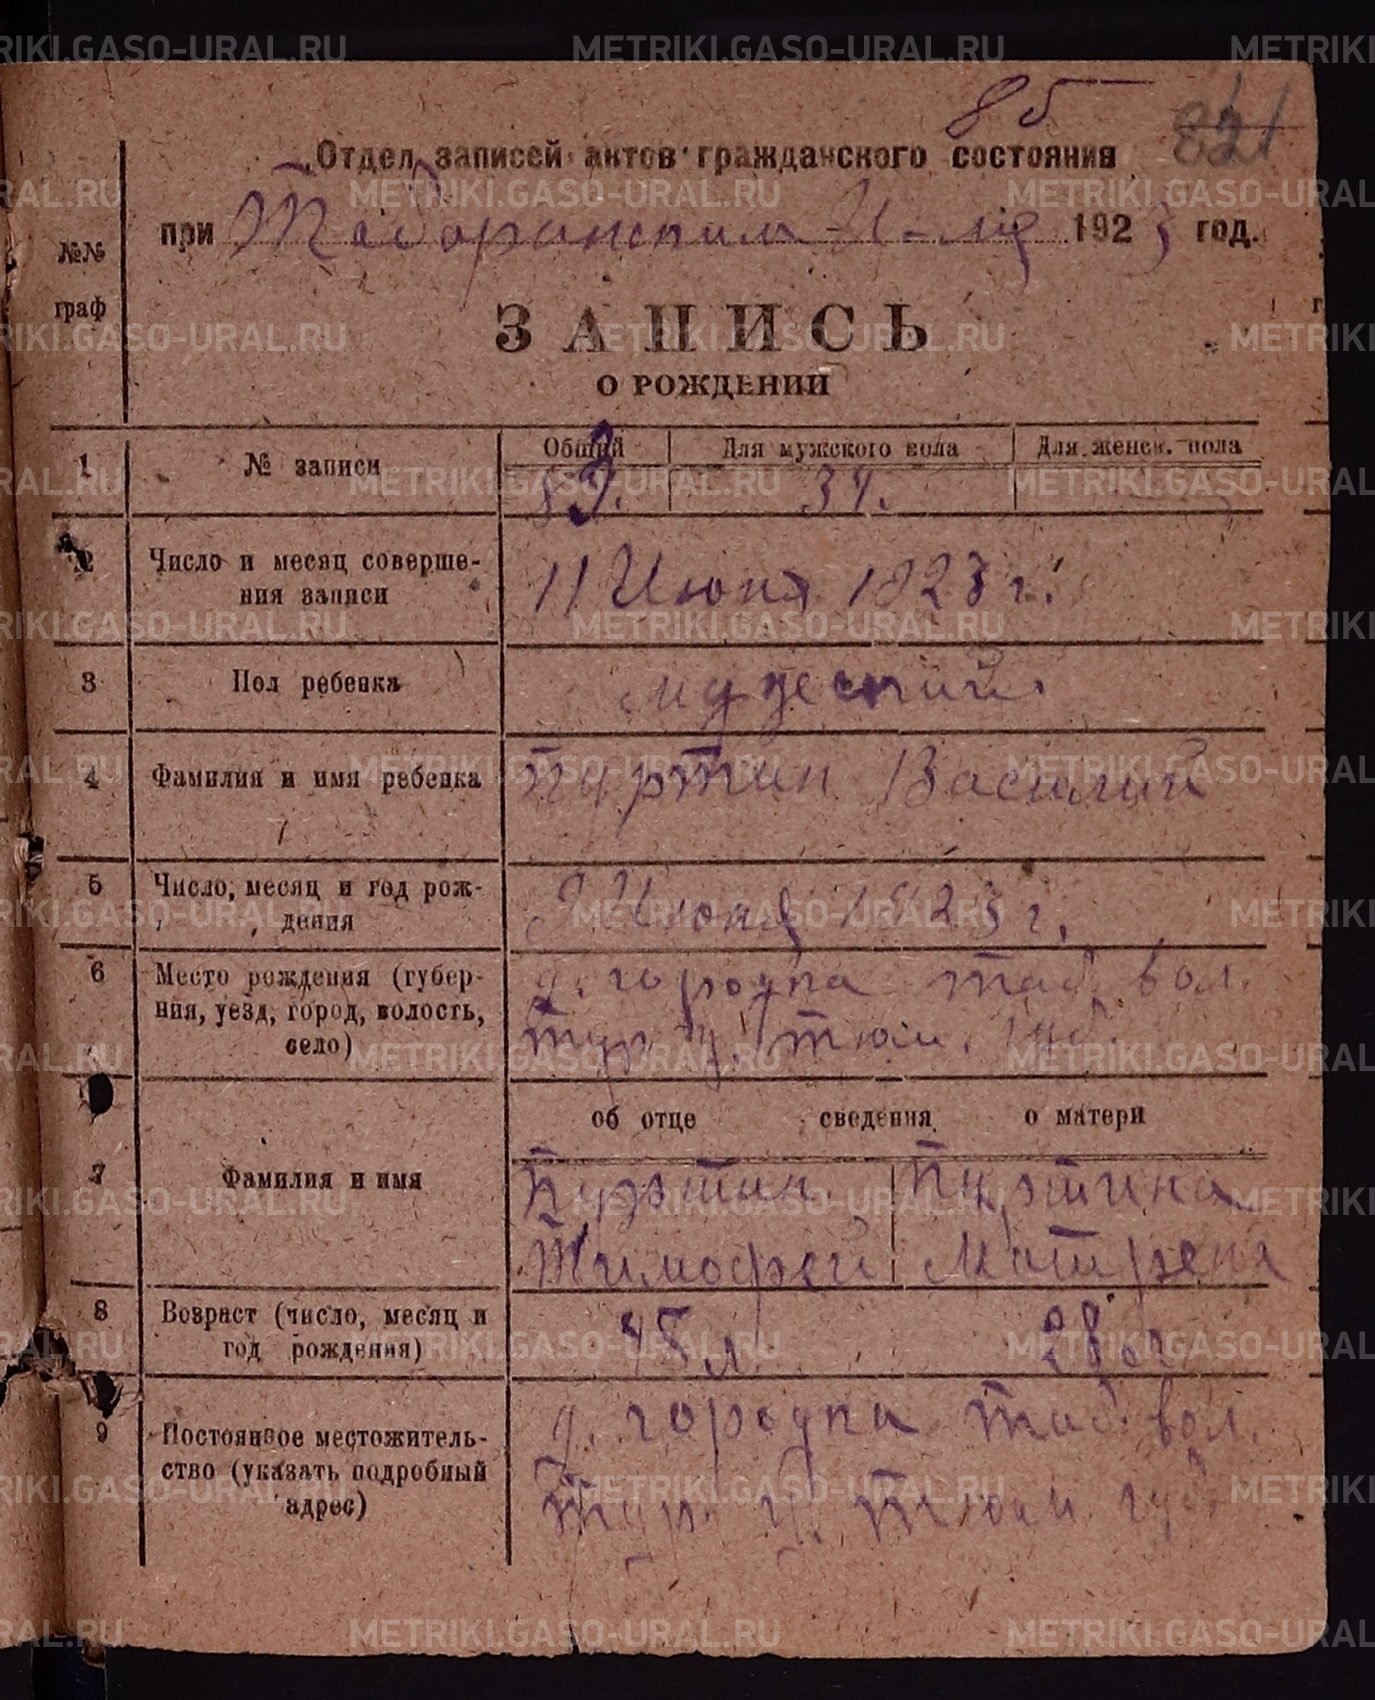 METRIKI.GASO-URAL.RU
85
821
Отдел записей актов гражданского состояния
при Таборинском И-ме 1923 год.
№№ граф
ЗАПИСЬ
О РОЖДЕНИИ
1 № записи Общий Для мужского пола Для женск. пола
83. 34.
2 Число и месяц соверше-
ния записи 11 Июня 1923 г.
3 Пол ребенка мужеский.
4 Фамилия и имя ребенка Пуртин Василий
5 Число, месяц и год рож-
дения Июня 1923 г.
6 Место рождения (губер-
ния, уезд, город, волость,
село)
д. городка таб. вол.
тур у. тюм. губ.
об отце сведения о матери
7 Фамилия и имя
Пуртин Пуртина
Тимофей Матрена
8 Возраст (число, месяц и
год рождения)
45 л. 28 л
9 Постоянное местожитель-
ство (указать подробный
адрес)
д. городка таб. вол.
тур. у. тюм губ.